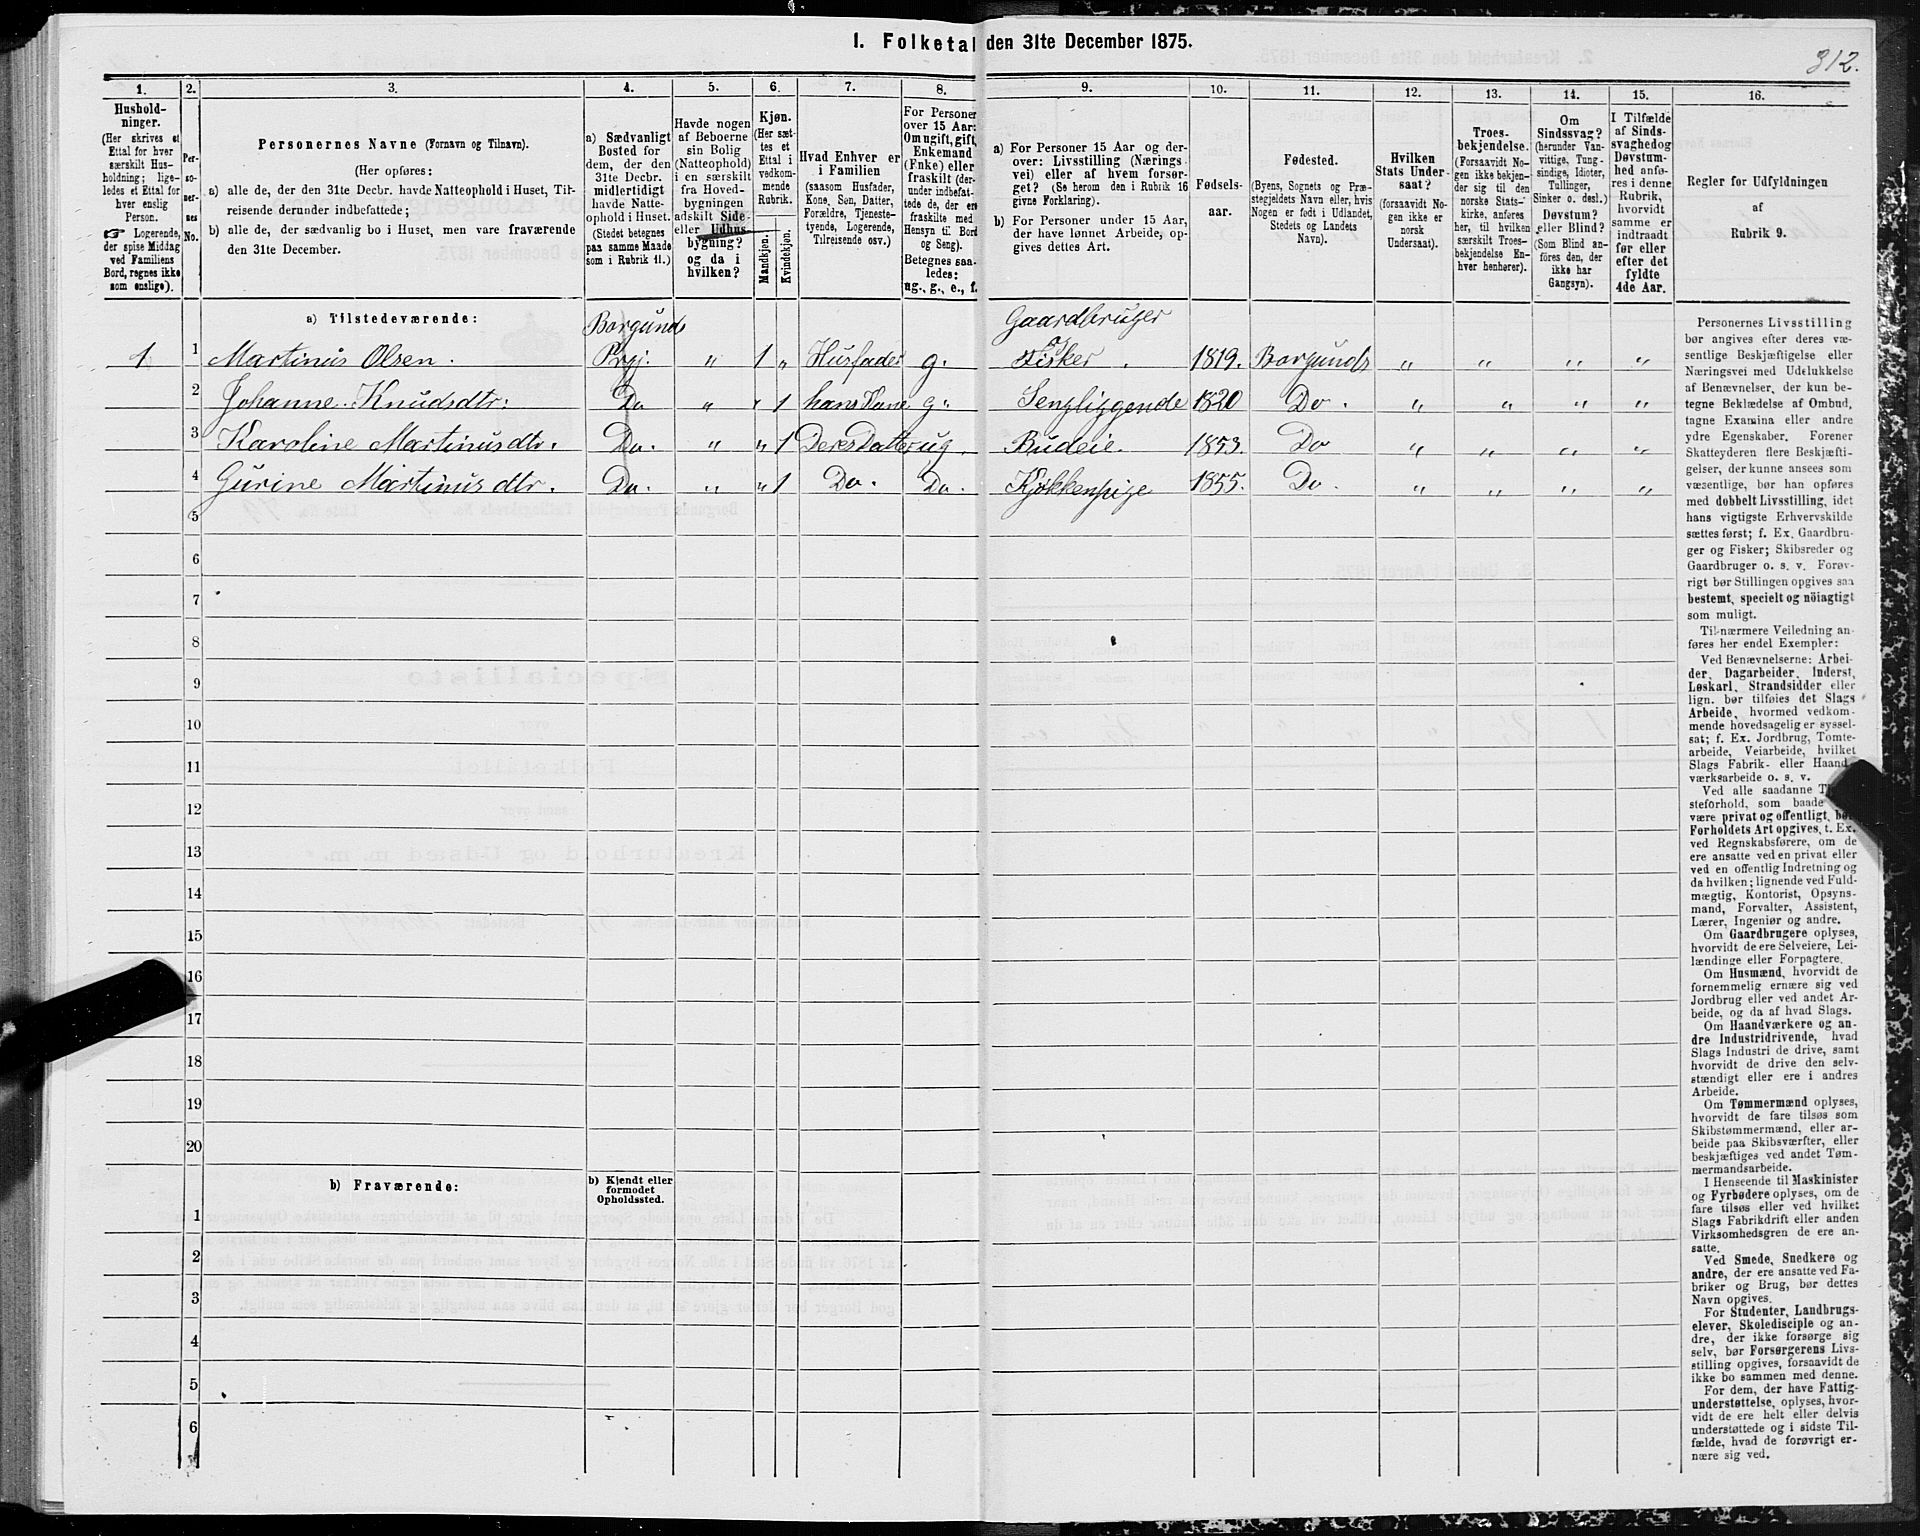 1. Folketal den 31te December 1875.
312.
1.
Hushold-
ninger.
(Her skrives et
Ettal for hver
særskilt Hus-
holdning; lige-
ledes et Ettal for
hver enslig
Person.
☞ Logerende,
der spise Middag
ved Familiens
Bord, regnes ikke
som enslige).
2.
Per-
so-
ner-
nes
No.
3.
Personernes Navne (Fornavn og Tilnavn).
(Her opføres:
a) alle de, der den 31te Decbr. havde Natteophold i Huset, Til-
reisende derunder indbefattede;
b) alle de, der sædvanlig bo i Huset, men vare fraværende
den 31te December.
4.
a) Sædvanligt
Bosted for
dem, der den
31te Decbr.
midlertidigt
havde Natte-
ophold i Huset.
(Stedet betegnes
paa samme Maade
som i Rubrik 11.)
5.
Havde nogen
af Beboerne
sin Bolig
(Natteophold)
i en særskilt
fra Hoved-
bygningen
adskilt Side-
eller Udhus-
bygning?
og da i
hvilken?
6.
Kjøn.
(Her sæt-
tes et
Ettal i
vedkom-
mende
Rubrik.
Mandkjøn.
Kvindekjøn.
7.
Hvad Enhver er
i Familien
(saasom Husfader,
Kone, Søn, Datter,
Forældre, Tjeneste-
tyende, Logerende,
Tilreisende osv.)
8.
For Personer
over 15 Aar:
Om ugift, gift,
Enkemand
(Enke) eller
fraskilt (der-
under indbefat-
tede de, der ere
fraskilte med
Hensyn til Bord
og Seng).
Betegnes saa-
ledes:
ug., g., e., f.
9.
a) For Personer 15 Aar og der-
over: Livsstilling (Nærings-
vei) eller af hvem forsør-
get? (Se herom den i Rubrik 16
givne Forklaring).
b) For Personer under 15 Aar,
der have lønnet Arbeide, op-
gives dettes Art.
10.
Fødsels-
aar.
11.
Fødested.
(Byens, Sognets og Præ-
stegjeldets Navn eller, hvis
Nogen er født i Udlandet,
Stedets og Landets
Navn).
12.
Hvilken
Stats Under-
saat?
(forsaavidt No-
gen ikke er
norsk
Undersaat).
13.
Troes-
bekjendelse.
(Forsaavidt No-
gen ikke bekjen-
der sig til den
norske Stats-
kirke, anføres
her, til hvilken
særskilt Troes-
bekjendelse En-
hver henhører).
14.
Om
Sindssvag?
(herunder Van-
vittige, Tung-
sindige, Idioter,
Tullinger,
Sinker o. desl.)
Døvstum?
eller Blind?
(Som Blind an-
føres den, der
ikke har
Gangsyn).
15.
I Tilfælde
af Sinds-
svaghed og
Døvstum-
hed anfø-
res i denne
Rubrik,
hvorvidt
samme er
indtraadt
før eller
efter det
fyldte
4de Aar.
16.
Regler for Udfyldningen
af
Rubrik 9.
a) Tilstedeværende: Borgunds Gaardbruger
1 1 Martinus Olsen. Prgj. " 1 " Husfader g. og Fisker. 1819. Borgunds " " " "
2 Johanne Knudsdtr: Do " " 1 hans Kone g. Sengliggende 1820 Do. " " " "
3 Karoline Martinusdtr. Do. " " 1 Deres Datter ug. Budeie. 1853. Do " " " "
4 Gurine Martinusdtr. Do. " " 1 Do. Do. Kjøkkenpige 1855. Do. " " " "
5
6
7
8
9
10
11
12
13
14
15
16
17
18
19
20
b) Fraværende:
b) Kjendt eller
formodet
Opholdssted.
1
2
3
4
5
6
Personernes Livsstilling
bør angives efter deres væ-
sentlige Beskjæftigelse eller
Næringsvei med Udelukkelse
af Benævnelser, der kun be-
tegne Beklædelse af Ombud,
tagne Examina eller andre
ydre Egenskaber. Forener
Skatteyderen flere Beskjæfti-
gelser, der kunne ansees som
væsentlige, bør han opføres
med dobbelt Livsstilling, idet
hans vigtigste Erhvervskilde
sættes først; f. Ex. Gaardbru-
ger og Fisker; Skibsreder og
Gaardbruger o. s. v. Forøv-
rigt bør Stillingen opgives saa
bestemt, specielt og nöiagtigt
som muligt.
Til nærmere Veiledning an-
føres her endel Exempler:
Ved Benævnelserne: Arbei-
der, Dagarbeider, Inderst,
Løskarl, Strandsidder eller
lign. bør tilføies det Slags
Arbeide, hvormed vedkom-
mende hovedsagelig er syssel-
sat; f. Ex. Jordbrug, Tomte-
arbeide, Veiarbeide, hvilket
Slags Fabrik- eller Haand-
værksarbeide o. s. v.
Ved alle saadanne
steforhold, som baade
være privat og offentligt, bør
Forholdets Art opgives, t. Ex.
ved Regnskabsførere, om de
ere ansatte ved en privat eller
ved en offentlig Indretning og
da hvilken; lignende ved Fuld-
mægtig, Kontorist, Opsyns-
mand, Forvalter, Assistent,
Lærer, Ingeniør og andre.
Om Gaardbrugere oplyses,
hvorvidt de ere Selveiere, Lei-
lændinge eller Forpagtere.
Om Husmænd, hvorvidt de
fornemmelig ernære sig ved
Jordbrug eller ved andet Ar-
beide, og da af hvad Slags.
Om Haandværkere og an-
dre Industridrivende, hvad
Slags Industri de drive, samt
hvorvidt de drive den selv-
stændigt eller ere i andres
Arbeide.
Om Tømmermænd oplyses,
hvorvidt de fare tilsøs som
Skibstømmermænd, eller ar-
beide paa Skibsværfter, eller
beskjæftiges ved andet Tøm-
mermandsarbeide.
I Henseende til Maskinister
og Fyrbødere oplyses, om de
fare tilsøs eller ved hvilket
Slags Fabrikdrift eller anden
Virksomhedsgren de ere an-
satte.
Ved Smede, Snedkere og
andre, der ere ansatte ved Fa-
briker og Brug, bør dettes
Navn opgives.
For Studenter, Landbrugs-
elever, Skoledisciple og an-
dre, der ikke forsørge sig
selv, bør Forsørgerens Livs-
stilling opgives, forsaavidt de
ikke bo sammen med denne.
For dem, der have Fattig-
understøttelse, oplyses, hvor-
vidt de ere helt eller delvis
understøttede og i sidste Til-
fælde, hvad de forøvrigt er-
nære sig ved.